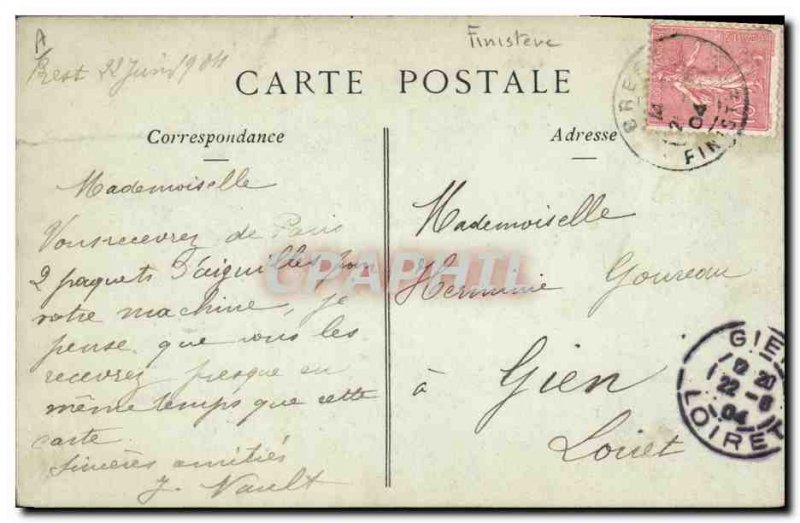 A
Finistère
Brest 22 Juin 1904
CARTE POSTALE
Correspondance
Adresse
Mademoiselle
Vous recevrez de Paris
2 paquets d'aiguilles pour
votre machine, je
pense que vous les
recevrez presque en
même temps que cette
carte
Sincères amitiés
J. Nault
Mademoiselle
Herminie Goureau
à Gien
Loiret
BRE
04
FINIST
GIE
12 20
22 - 6
04
LOIRET
CPAPHIL